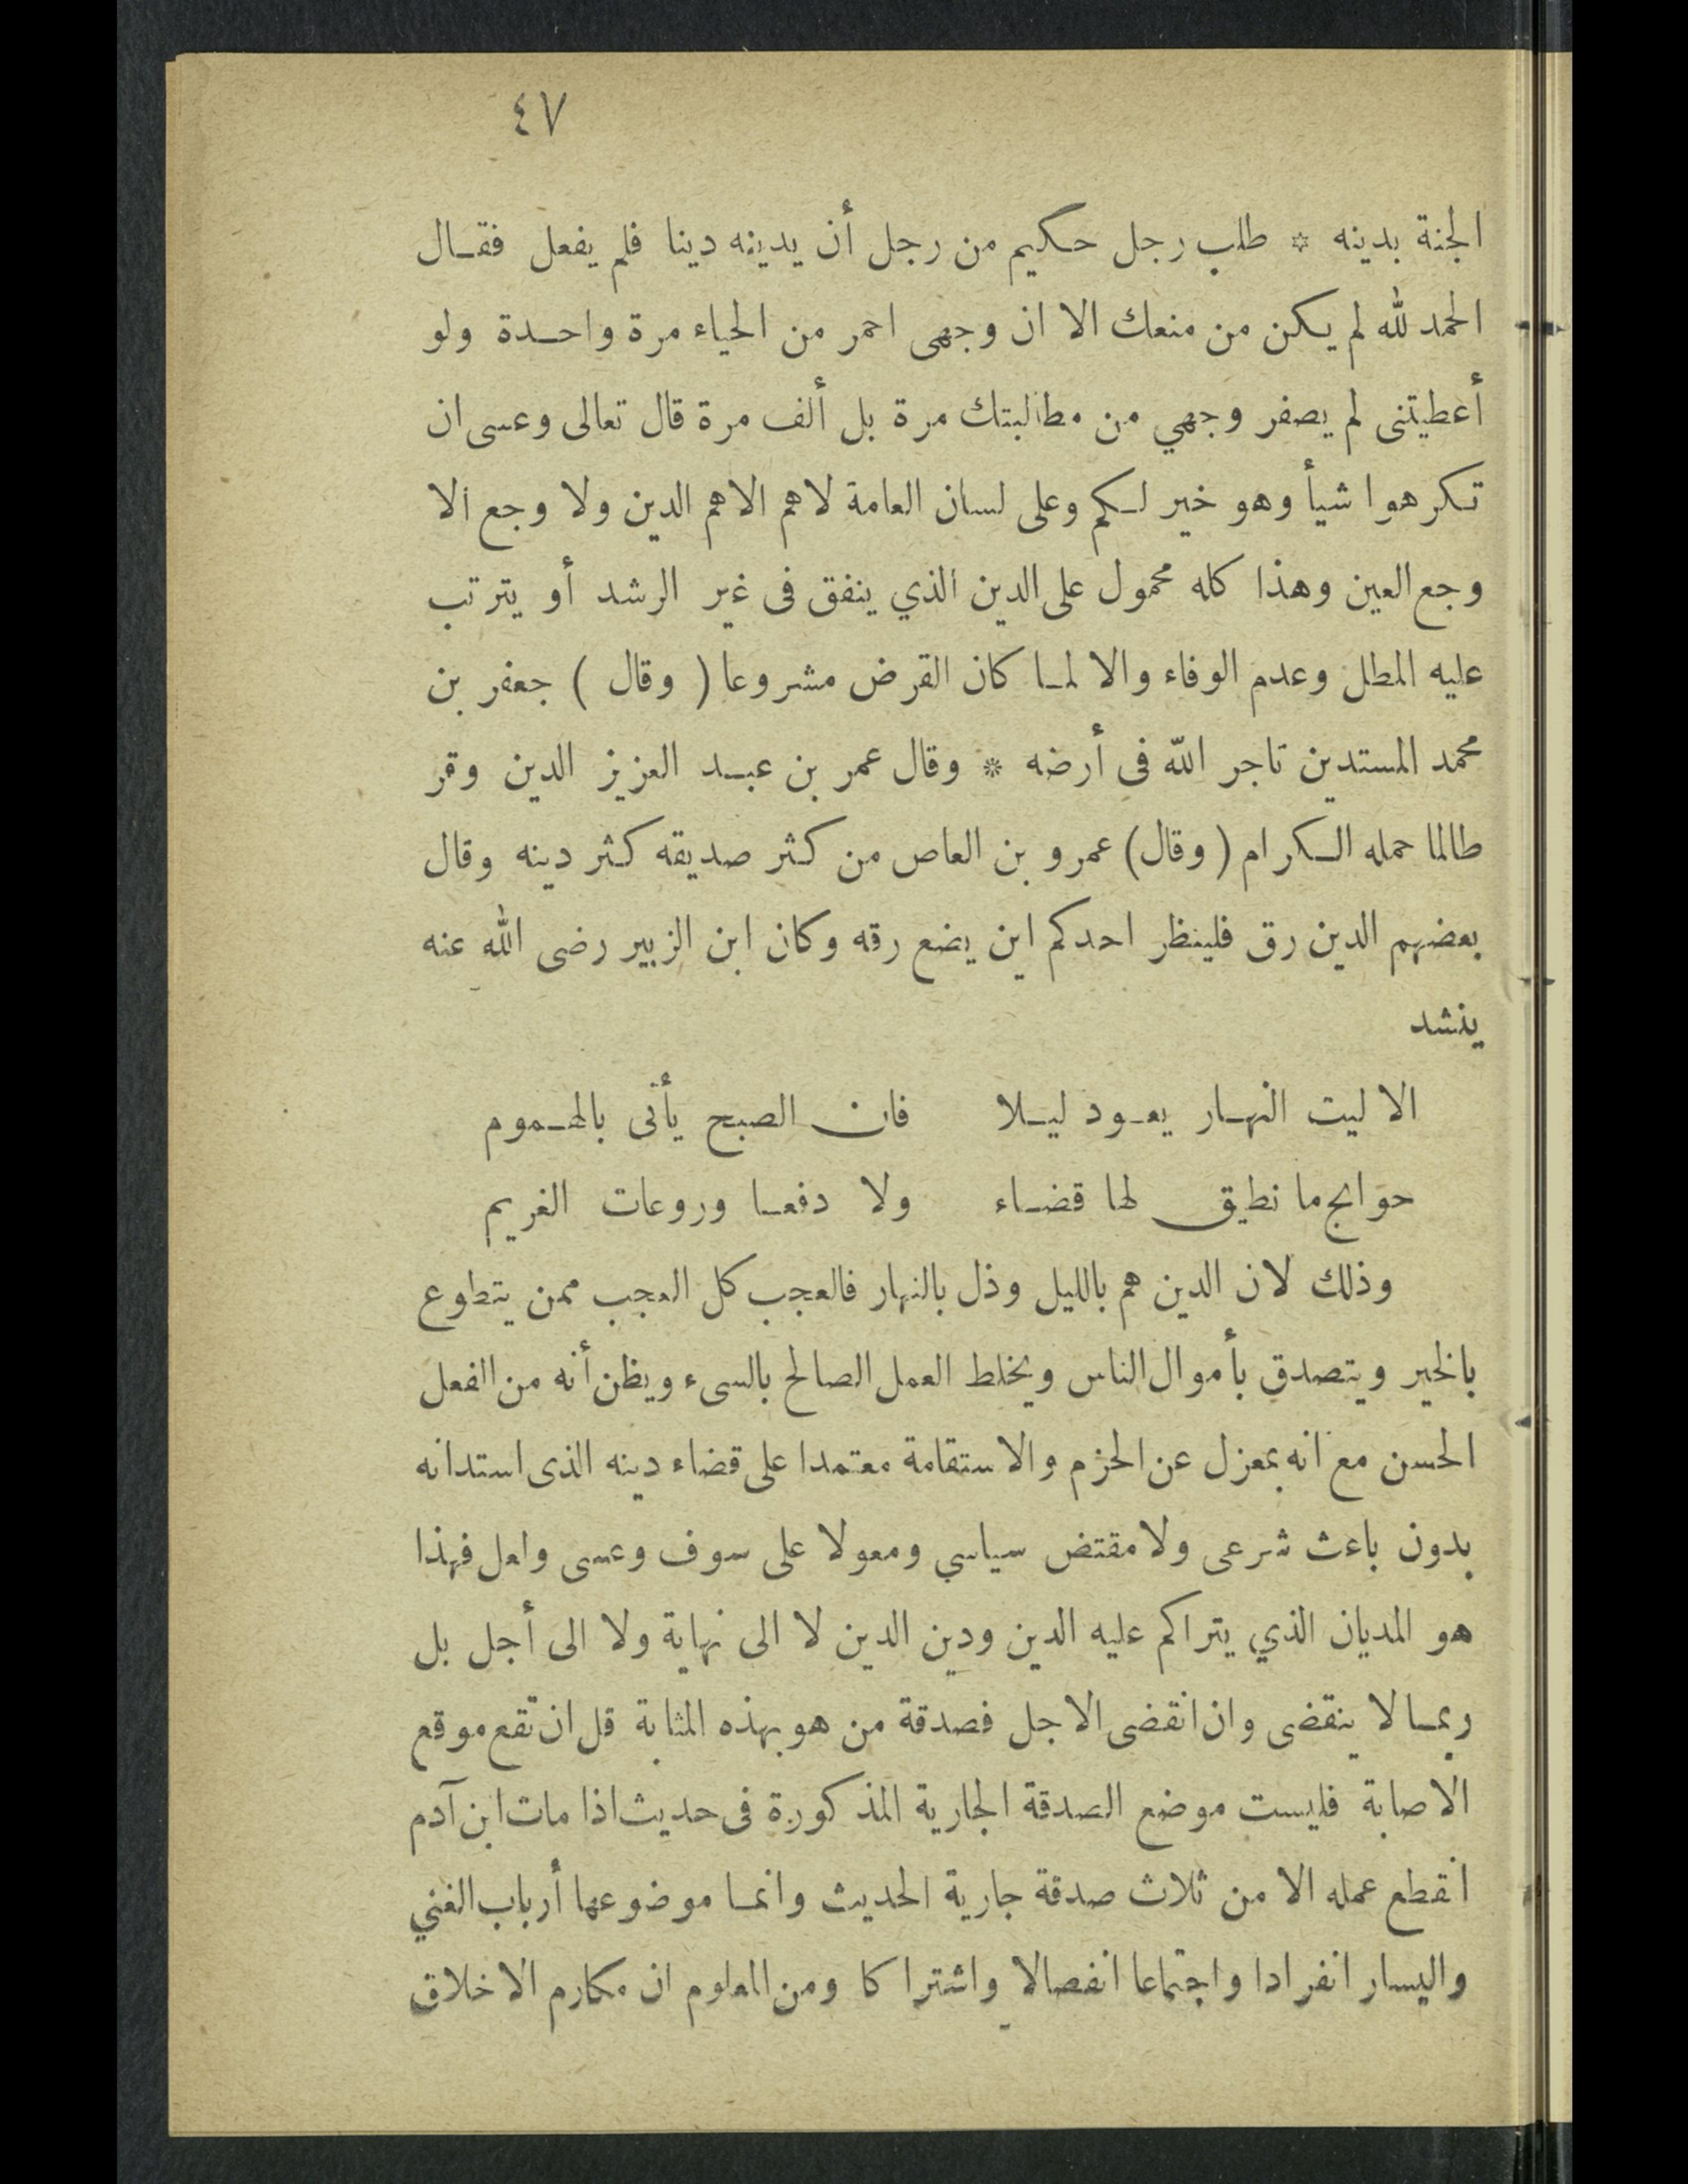 ٤٧
الجنة بدينه * طلب رجل حكيم من رجل أن يدينه دينا فلم يفعل فقال
الحمد لله لم يكن من منعك الا ان وجهى احمر من الحياء مرة واحدة ولو
أعطيتنى لم يصفر وجهي من مطالبتك مرة بل ألف مرة قال تعالى وعسى ان
تكرهوا شيأ وهو خير لكم وعلى لسان العامة لاهم الاهم الدين ولا وجع الا
وجع العين وهذا كله محمول على الدين الذي ينفق فى غير الرشد أو يترتب
عليه المطل وعدم الوفاء والا لما كان القرض مشروعا ( وقال ) جعفر بن
محمد المستدين تاجر الله فى أرضه * وقال عمر بن عبد العزيز الدين وقر
طالما حمله الكرام ( وقال ) عمرو بن العاص من كثر صديقه كثر دينه وقال
بعضهم الدين رق فلينظر احدكم اين يضع رقه وكان ابن الزبير رضى الله عنه
ينشد
الا ليت النهار يعود ليلا فان الصبح يأتى بالهموم
حوائج ما نطيق لها قضاء ولا دفعا وروعات الغريم
وذلك لان الدين هم بالليل وذل بالنهار فالعجب كل العجب ممن يتطوع
بالخير ويتصدق بأموال الناس ويخلط العمل الصالح بالسىء ويظن أنه من الفعل
الحسن مع انه بمعزل عن الحزم والاستقامة معتمدا على قضاء دينه الذى استدانه
بدون باعث شرعى ولا مقتض سياسي ومعولا على سوف وعسى ولعل فهذا
هو المديان الذي يتراكم عليه الدين ودين الدين لا الى نهاية ولا الى أجل بل
ربما لا ينقضى وان انقضى الاجل فصدقة من هو بهذه المثابة قل ان تقع موقع
الاصابة فليست موضع الصدقة الجارية المذكورة فى حديث اذا مات ابن آدم
انقطع عمله الا من ثلاث صدقة جارية الحديث وانما موضوعها أرباب الغني
واليسار انفرادا واجتماعا انفصالا واشتراكا ومن المعلوم ان مكارم الاخلاق